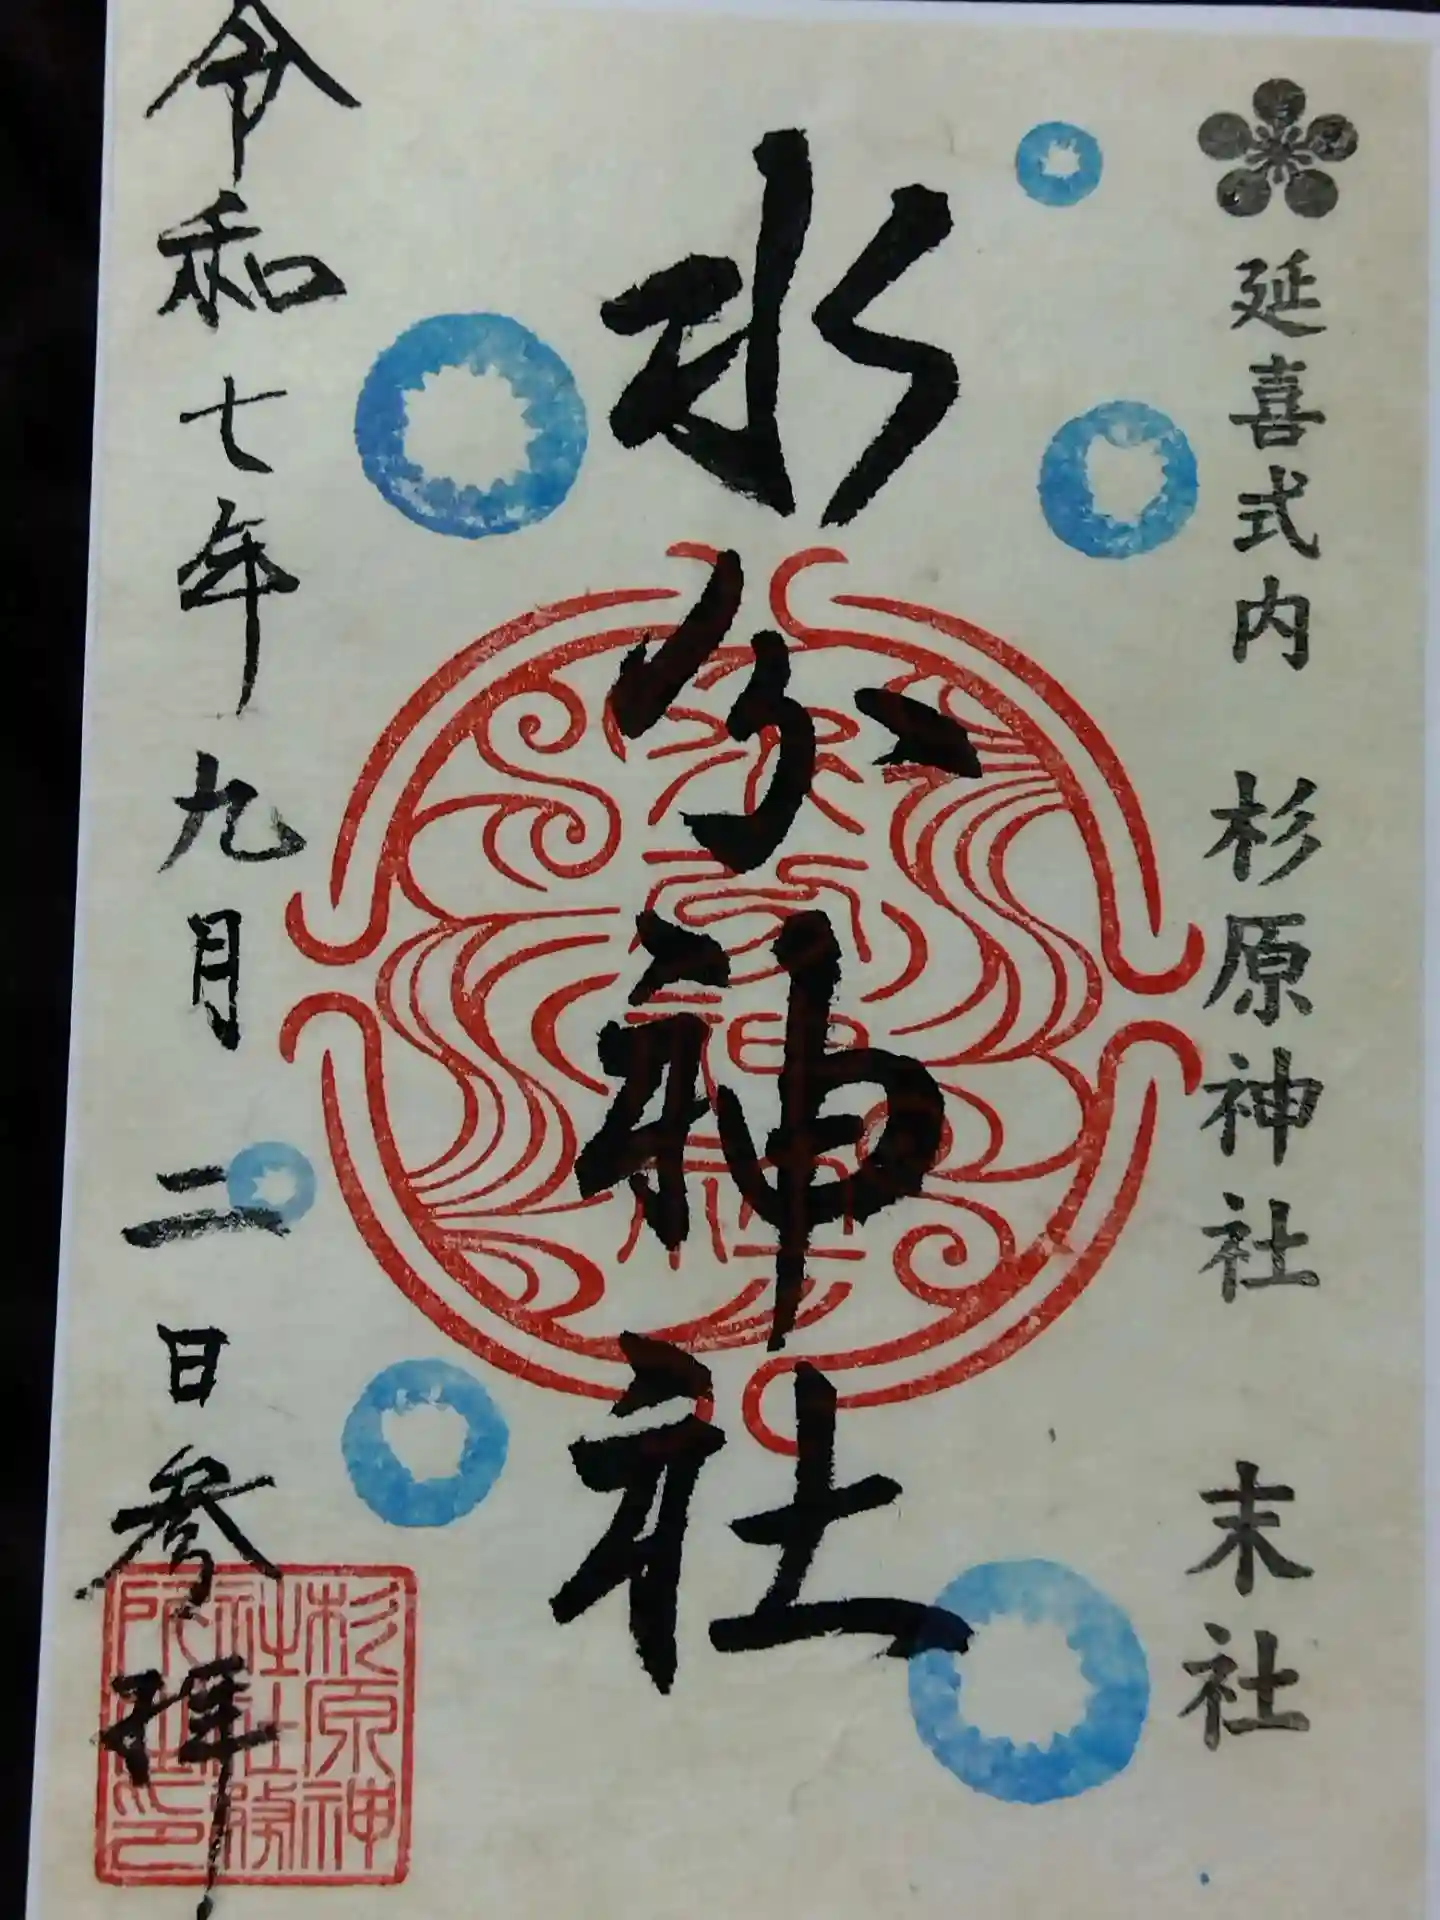 延喜式内 杉原神社 末社
水分神社
水分神社
令和七年九月二日参拝
杉原神社社務所之印